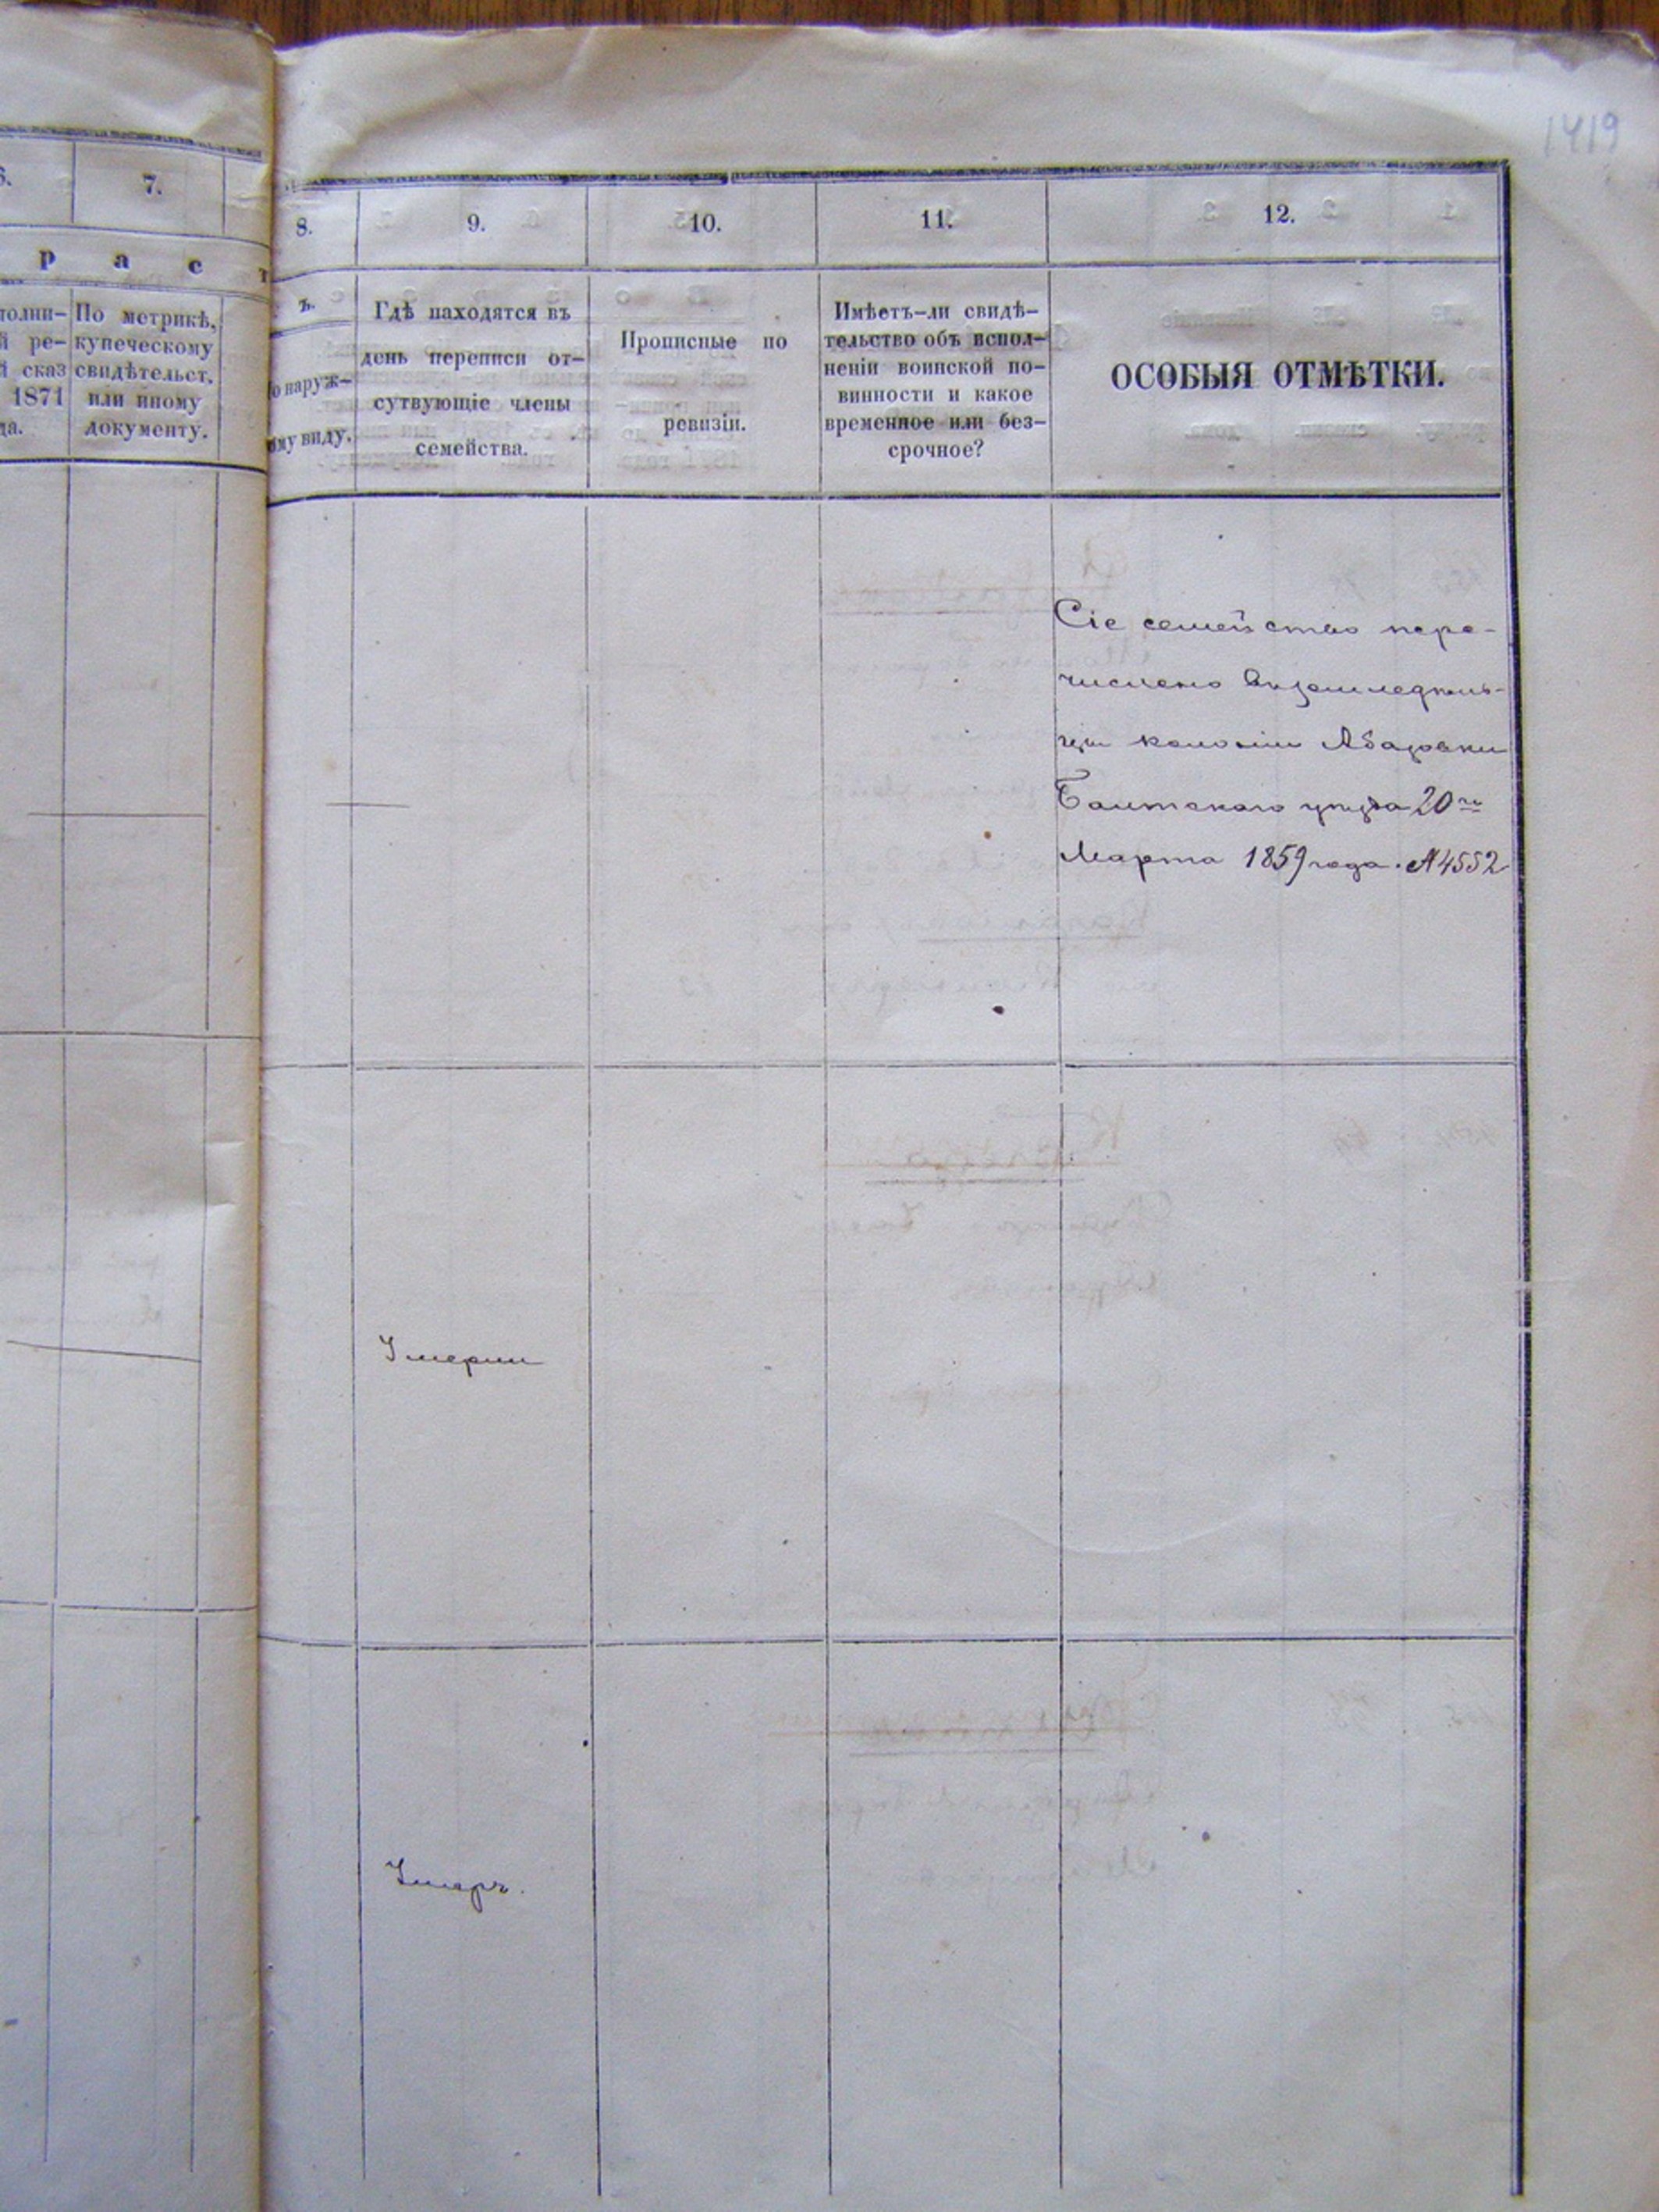 1419
6.
7.
р а с т
полни-
й ре-
й сказ
1871
да.
По метрикѣ,
купеческому
свидѣтельст.
или иному
документу.
8.
9.
10.
11.
12.
ъ.
о наруж-
ому виду.
Гдѣ находятся въ
день переписи от-
сутвующіе члены
семейства.
Прописные по
ревизіи.
Имѣетъ-ли свидѣ-
тельство объ испол-
неніи воинской по-
винности и какое
временное или без-
срочное?
ОСОБЫЯ ОТМѢТКИ.
Сіе семейство пере-
числено въ земледѣль-
цы колоніи Абазовки
Балтскаго уѣзда 20го
Марта 1859 года. № 4552
Умерли
Умеръ.